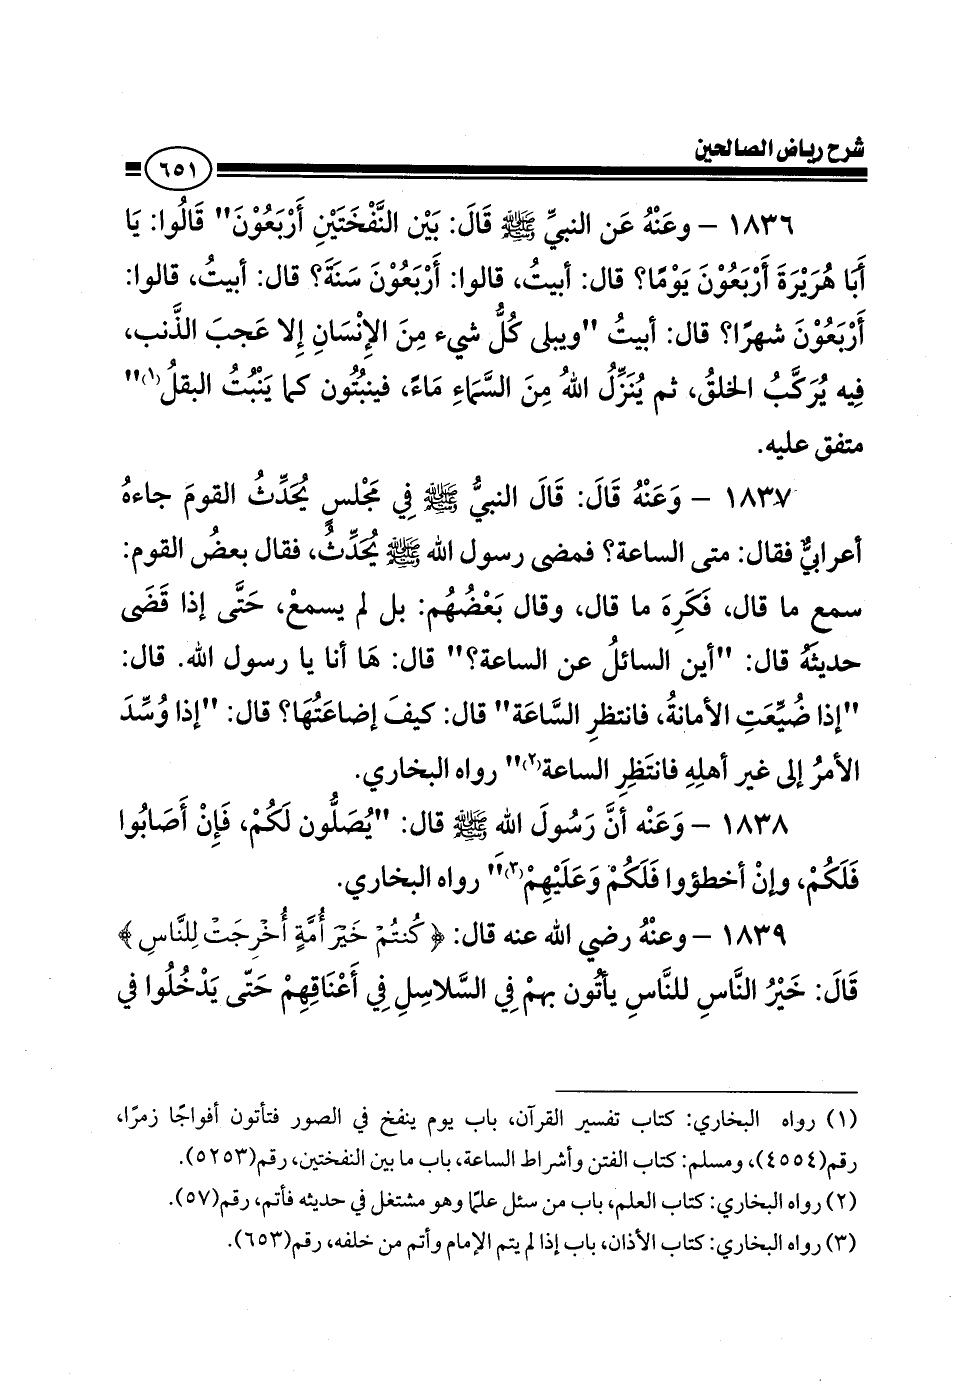 شرح رياض الصالحين
٦٥١
١٨٣٦ – وعَنْهُ عَن النبيِّ ﷺ قَالَ: بَيْن النَّفْخَتَيْنِ أَرْبَعُوْنَ" قَالُوا: يَا
أَبَا هُرَيْرَةَ أَرْبَعُوْنَ يَوْمًا؟ قال: أبيتُ، قالوا: أَرْبَعُوْنَ سَنَة؟ قال: أبيتُ، قالوا:
أَرْبَعُوْنَ شهرًا؟ قال: أبيتُ "ويبلى كُلُّ شيء مِنَ الإِنْسَانِ إلا عَجبَ الذَّنب،
فِيه يُرَكَّبُ الخلقُ، ثم يُنَزِّلُ اللهُ مِنَ السَّمَاءِ مَاءً، فينبُتُون كما يَنْبُتُ البقلُ(١)"
متفق عليه.
١٨٣٧ – وَعَنْهُ قَالَ: قَالَ النبيُّ ﷺ فِي مَجْلسٍ يُحَدِّثُ القومَ جاءهُ
أعرابيٌّ فقال: متى الساعة؟ فمضى رسول الله ﷺ يُحَدِّثُ، فقال بعضُ القوم:
سمع ما قال، فَكَرِهَ ما قال، وقال بَعْضُهُم: بل لم يسمعْ، حَتَّى إذا قَضَى
حديثَهُ قال: "أين السائلُ عن الساعة؟" قال: هَا أنا يا رسول الله. قال:
"إذا ضُيِّعَتِ الأمانةُ، فانتظرِ السَّاعَة" قال: كيفَ إضاعَتُهَا؟ قال: "إذا وُسِّدَ
الأمرُ إلى غير أهلِهِ فانتَظِرِ الساعة(٢)" رواه البخاري.
١٨٣٨ – وَعَنْه أنَّ رَسُولَ الله ﷺ قال: "يُصَلُّون لَكُمْ، فَإِنْ أَصَابُوا
فَلَكُمْ، وإنْ أخطؤوا فَلَكُمْ وَعَلَيْهِمْ(٣)" رواه البخاري.
١٨٣٩ – وعنْهُ رضي الله عنه قال: ﴿ كُنتُمْ خَيْرَ أُمَّةٍ أُخْرِجَتْ لِلنَّاسِ ﴾
قَالَ: خَيْرُ النَّاسِ للنَّاسِ يأتُون بهمْ فِي السَّلاسِلِ فِي أَعْنَاقِهِمْ حَتّى يَدْخُلُوا في
(١) رواه البخاري: كتاب تفسير القرآن، باب يوم ينفخ في الصور فتأتون أفواجًا زمرًا،
رقم(٤٥٥٤)، ومسلم: كتاب الفتن وأشراط الساعة، باب ما بين النفختين، رقم(٥٢٥٣).
(٢) رواه البخاري: كتاب العلم، باب من سئل علمًا وهو مشتغل في حديثه فأتم، رقم(٥٧).
(٣) رواه البخاري: كتاب الأذان، باب إذا لم يتم الإمام وأتم من خلفه، رقم(٦٥٣).